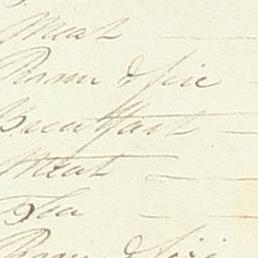 Meat
Room & fire
Breakfast
Meat
Tea
Room & fire